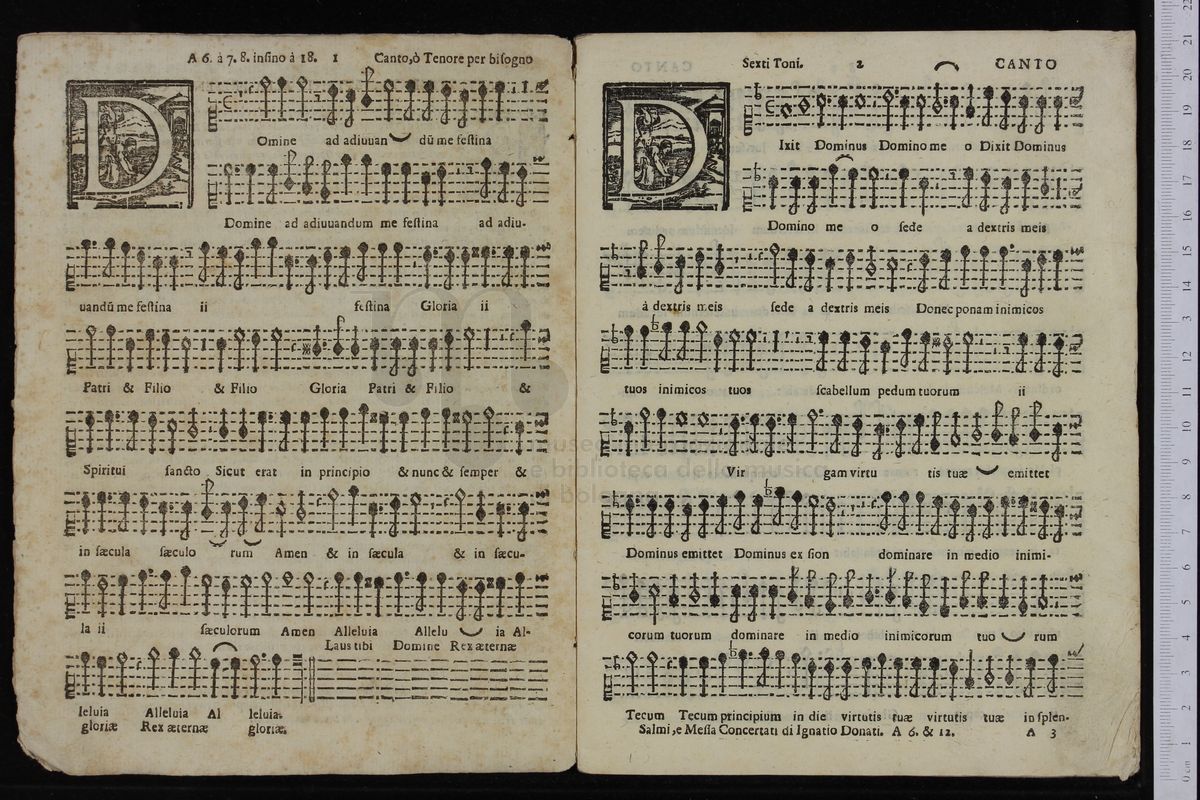 A 6. à 7. 8. insino à 18. 1 Canto,ò Tenore per bisogno
D
Omine ad adiuuan dū me festina
Domine ad adiuuandum me festina ad adiu-
uandū me festina ii festina Gloria ii
Patri & Filio & Filio Gloria Patri & Filio &
Spiritui sancto Sicut erat in principio & nunc & semper &
in sæcula sæculo rum Amen & in sæcula & in sæcu-
la ii sæculorum Amen Alleluia Allelu ia Al-
Laus tibi Domine Rex æternæ
leluia Alleluia Al leluia.
gloriæ Rex æternæ gloriæ.
Sexti Toni. 2 CANTO
D
Ixit Dominus Domino me o Dixit Dominus
Domino me o sede a dextris meis
à dextris meis sede a dextris meis Donec ponam inimicos
tuos inimicos tuos scabellum pedum tuorum ii
Vir gam virtu tis tuæ emittet
Dominus emittet Dominus ex sion dominare in medio inimi-
corum tuorum dominare in medio inimicorum tuo rum
Tecum Tecum principium in die virtutis tuæ virtutis tuæ in splen-
Salmi, e Messa Concertati di Ignatio Donati. A 6. & 12. A 3
museo
e biblioteca della musica